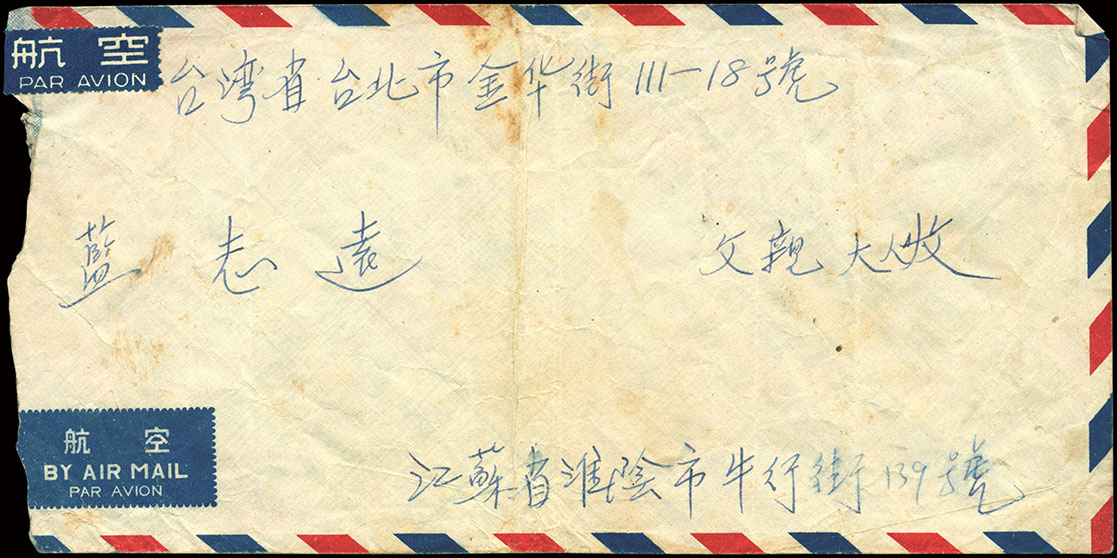 航空
PAR AVION
台湾省台北市金华街111-18号
藍志遠 父親大人收
航空
BY AIR MAIL
PAR AVION
江蘇省淮陰市牛行街139号